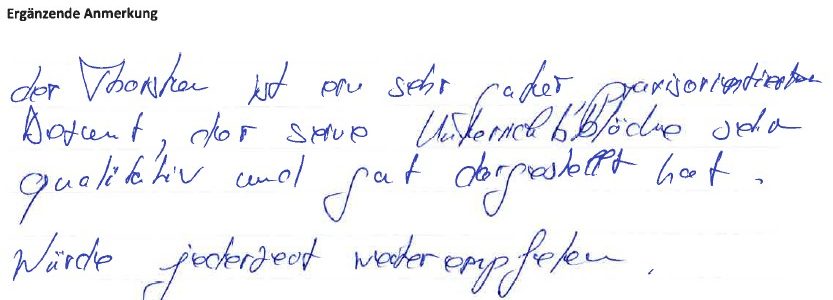 Ergänzende Anmerkung
der Thorsten ist ein sehr guter praxisorientierter
Dozent, der seine Unterrichtsblöcke sehr
qualitativ und gut dargestellt hat.
Würde jederzeit weiterempfehlen.